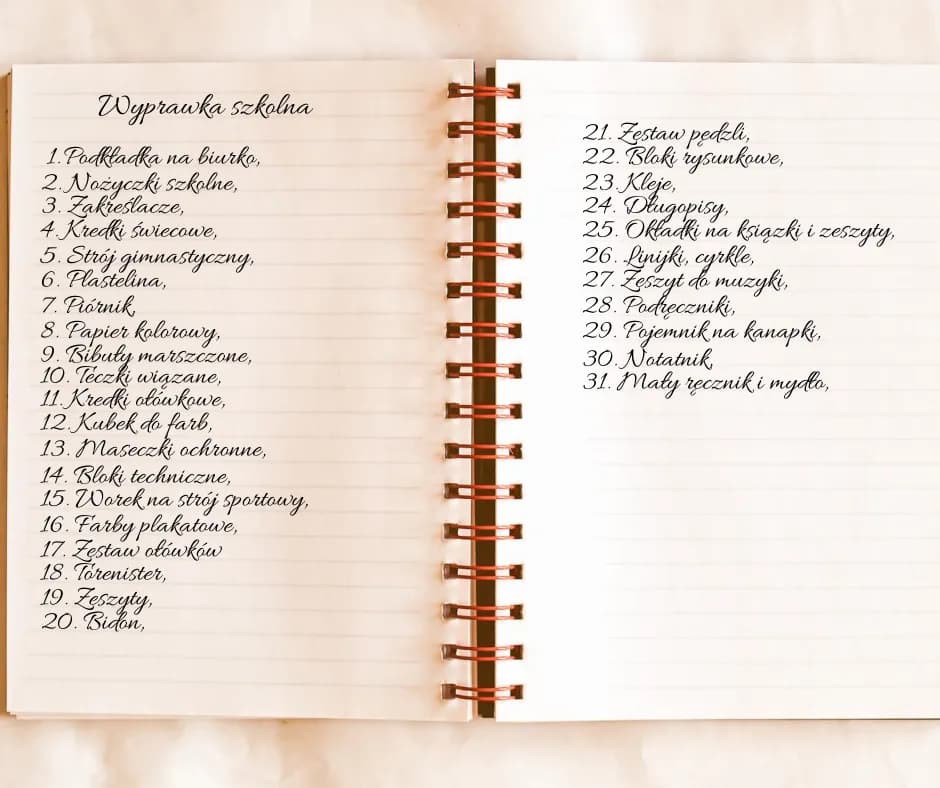 Wyprawka szkolna
1. Podkładka na biurko,
2. Nożyczki szkolne,
3. Zakreślacze,
4. Kredki świecowe,
5. Strój gimnastyczny,
6. Plastelina,
7. Piórnik,
8. Papier kolorowy,
9. Bibuły marszczone,
10. Teczki wiązane,
11. Kredki ołówkowe,
12. Kubek do farb,
13. Maseczki ochronne,
14. Bloki techniczne,
15. Worek na strój sportowy,
16. Farby plakatowe,
17. Zestaw ołówków
18. Torenister,
19. Zeszyty,
20. Bidon,
21. Zestaw pędzli,
22. Bloki rysunkowe,
23. Kleje,
24. Długopisy,
25. Okładki na książki i zeszyty,
26. Linijki, cyrkle,
27. Zeszyt do muzyki,
28. Podręczniki,
29. Pojemnik na kanapki,
30. Notatnik,
31. Mały ręcznik i mydło,